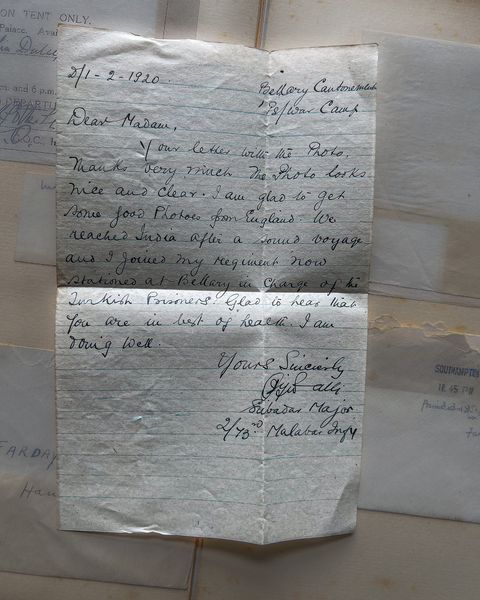 ON TENT ONLY.
Palace
and 6 p.m.
DEPARTU
D/1-2-1920.
Bellary Cantonment
Ps/War Camp
Dear Madam,
Your letter with the Photo,
Thanks very much the Photo looks
nice and clear. I am glad to get
some good Photoes from England. We
reached India after a sound voyage
and I joined my regiment now
stationed at Bellary in charge of the
Turkish Prisoners. Glad to hear that
you are in best of health. I am
doing well.
Yours Sincirly
alli
Subadar Major
2/73rd Malabar Infy
SOUTHAMPTON
18.45 PM